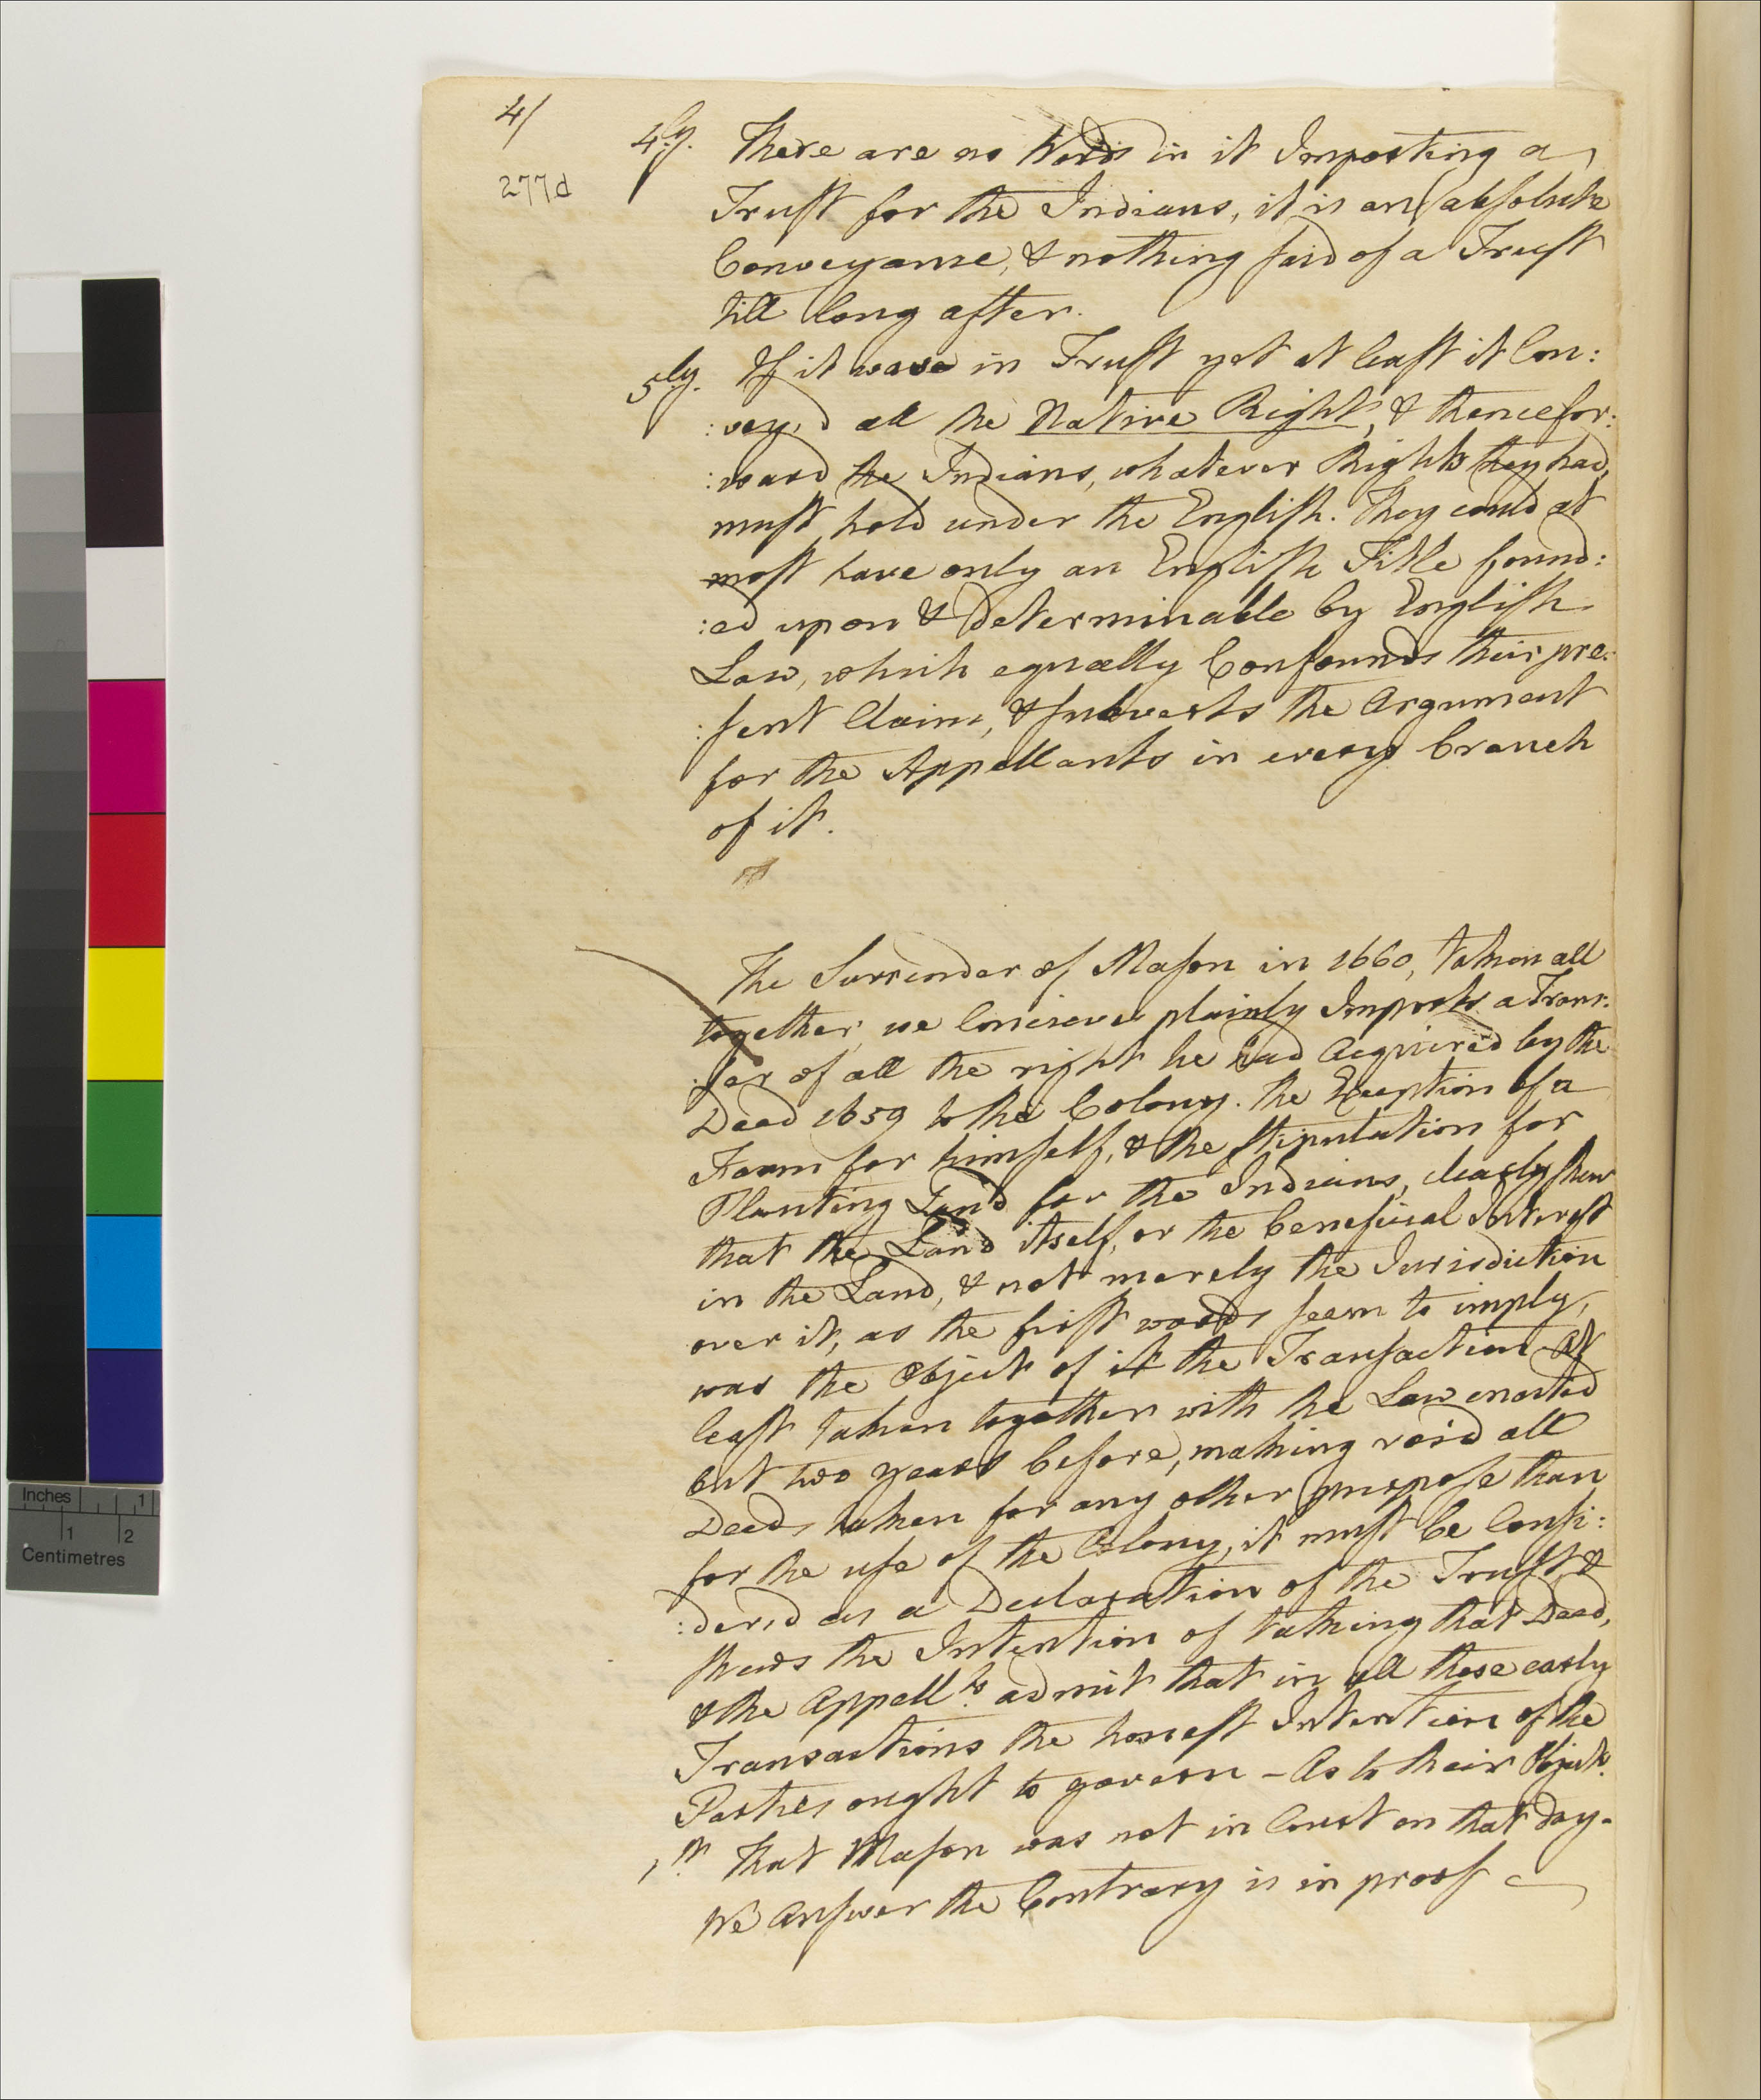 4/
277d
4ly. There are no Words in it Importing a
Trust for the Indians, it is an absolute
Conveyance, & nothing said of a Trust
till long after.
5ly. If it was in Trust yet at least it Con:
:vey'd all the Native Right, & thencefor:
:ward the Indians, whatever Rights they had,
must hold under the English. They could at
most have only an English Title found:
:ed upon & determinable by English
Law, which equally Confounds their pre:
:sent Claim, & subverts the Argument
for the Appellants in every branch
of it.
The Surrender of Mason in 1660, taken all
together, we Conceive plainly Imports a Trans:
:fer of all the right he had Acquired by the
Deed 1659 to the Colony. the Exception of a
Farm for himself, & the stipulation for
Planting Land for the Indians, clearly shew
that the Land itself, or the beneficial Interest
in the Land, & not merely the Jurisdiction
over it, as the first words seem to imply,
was the Object of it the Transaction At
least taken together with the Law enacted
but two years before, making void all
Deeds taken for any other purpose than
for the use of the Colony, it must be Consi:
:der'd as a Declaration of the Trust, &
shews the Intention of taking that Deed,
& the Appellts admit that in all these early
Transactions the honest Intention of the
Parties ought to govern – As to their Object.
1st. That Mason was not in Court on that day –
We Answer the Contrary is in proof